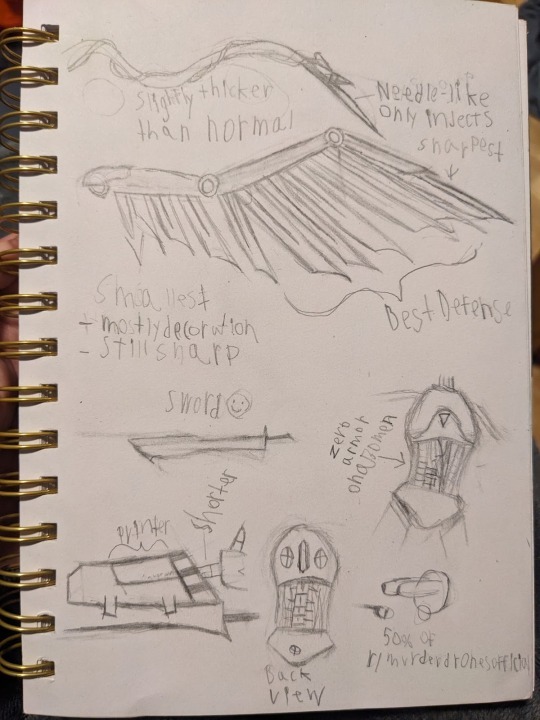 slightly thicker
than normal
Needle-like
only insects
sharpest
Smallest
+ mostly decoration
- still sharp
Best Defense
sword
zero
armor
on abdomen
printer
shorter
Back
view
50% of
r/murderdronesofficial